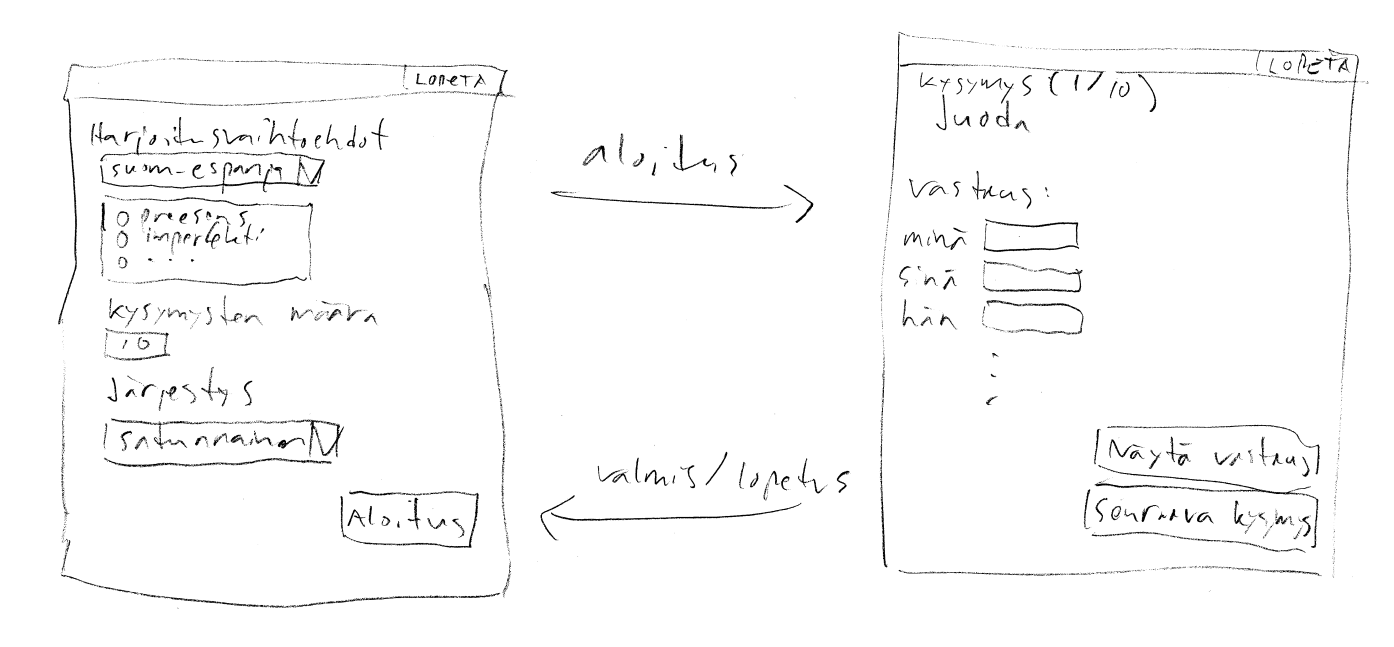 LOPETA
Harjoitusvaihtoehdot
suom-espanja
preesens
imperfekti
...
kysymysten määrä
10
Järjestys
satunnainen
Aloitus
aloitus
valmis/lopetus
LOPETA
kysymys (1/10)
Juoda
vastaus:
minä
sinä
hän
Näytä vastaus
Seuraava kysymys